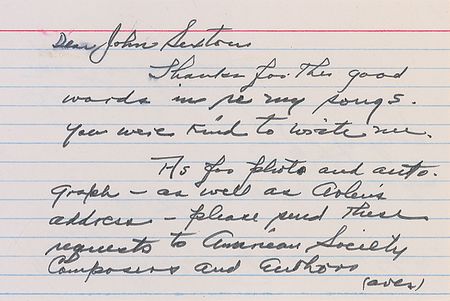 Dear John Sextons
Thanks for the good
words in re my songs.
You were kind to write me.
As for photo and auto-
graph - as well as Arlen's
address - please send these
requests to American Society
Composers and Authors
(over)